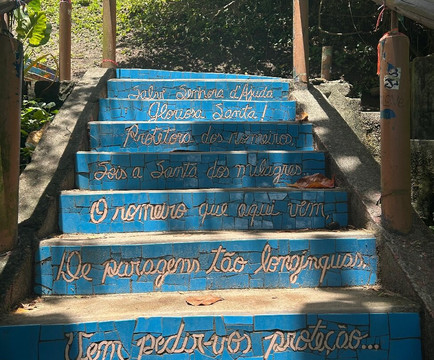 Salve Senhora d'Ajuda
Gloriosa Santa!
Protetora dos romeiros
Sois a Santa dos milagres
O romeiro que aqui vem,
De paragens tão longínquas,
Vem pedir-vos proteção...